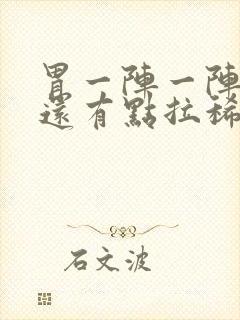 胃一陣一陣
還有點拉稀
石文波